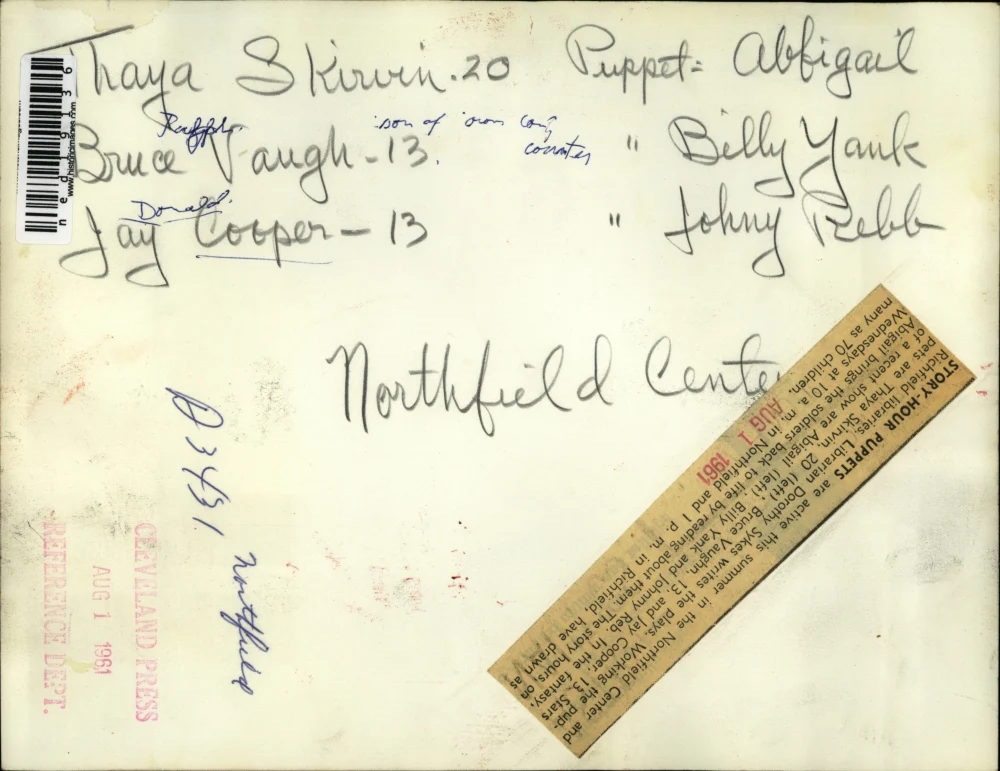 Thaya Skirvin - 20 Puppet = Abbigail
Ralph.
son of
county
Bruce Vaugh - 13. " Billy Yank
Donald.
Jay Cooper - 13 " Johny Rebb
Northfield Cente
D3431
Northfield
CLEVELAND PRESS
AUG 1 1961
REFERENCE DEPT.
STORY-HOUR PUPPETS are active this summer in the Northfield Center and
Richfield libraries. Librarian Dorothy Sykes writes the plays. Working the pup-
pets are Thaya Skirvin, 20 (left), Bruce Vaughn, 13, and Jay Cooper, 13. Stars
of a recent show are Abigail (left), Billy Yank and Johnny Reb. In the fantasy,
Abigail brings the soldiers back to life by reading about them. The story hours, on
Wednesdays at 10 a. m. in Northfield and 1 p. m. in Richfield, have drawn as
many as 70 children.
AUG 1 1961
ned 19136
www.historicimages.com